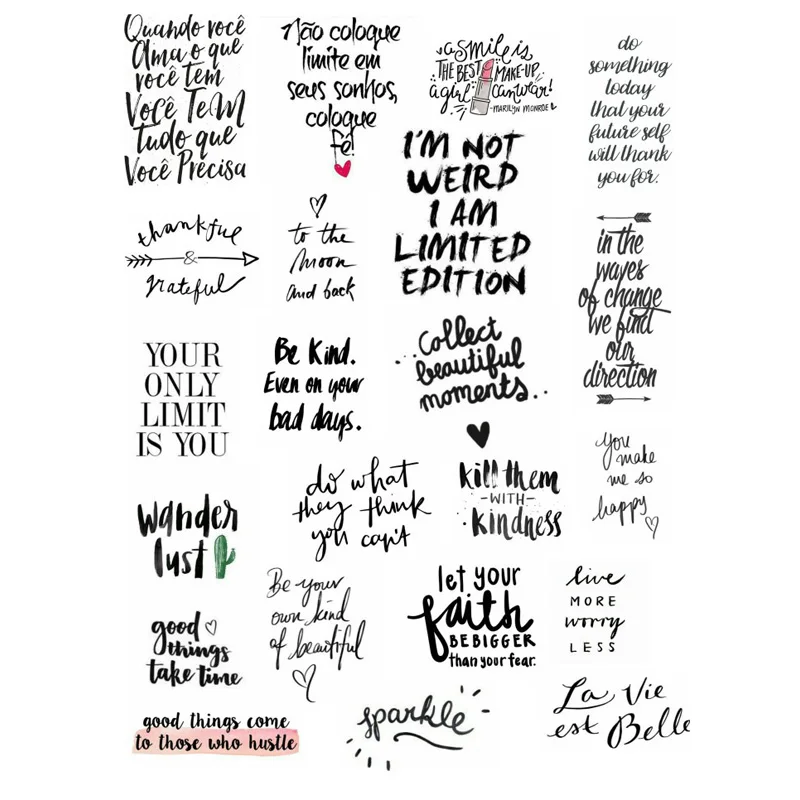 Quando você
Ama o que
você tem
Você TeM
Tudo que
Você Precisa
Não coloque
limite em
seus sonhos,
coloque
fé!
a smile is
THE BEST MAKE-UP
a girl can wear!
-MARILYN MONROE
do
something
today
that your
future self
will thank
you for.
I'M NOT
WEIRD
I AM
LIMITED
EDITION
thankful
&
grateful
to the
Moon
and back
in the
waves
of change
we find
our
direction
YOUR
ONLY
LIMIT
IS YOU
Be Kind.
Even on your
bad days.
..Collect
beautiful
moments..
you
make
me so
happy
do what
they think
you can't
kill them
-WITH-
kindness
wander
lust
Be your
own kind
of beautiful
let your
faith
BE BIGGER
than your fear.
live
MORE
worry
LESS
good
things
take time
good things come
to those who hustle
sparkle
La Vie
est Belle